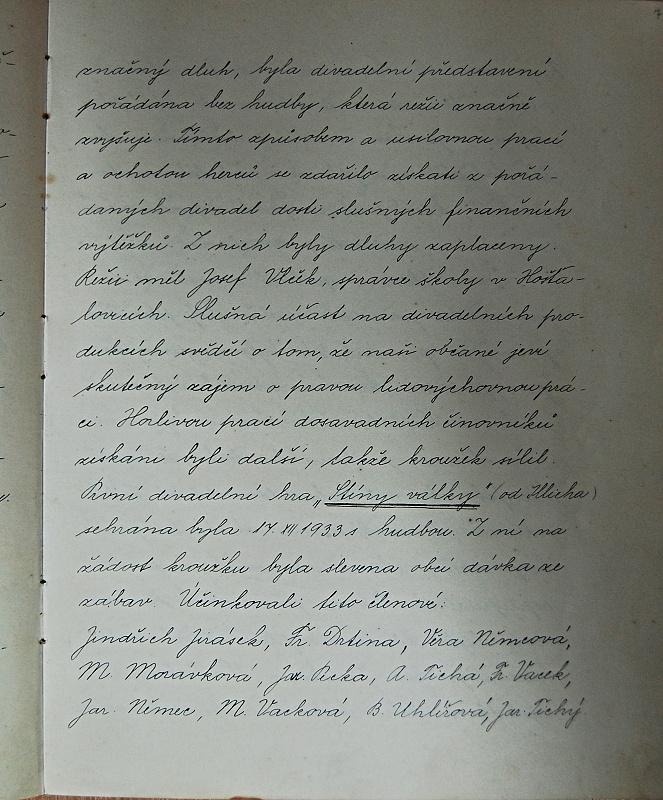 značný dluh, byla divadelní představení
pořádána bez hudby, která režii značně
zvyšuje. Tímto způsobem a usilovnou prací
a ochotou herců se zdařilo získati z pořá-
daných divadel dosti slušných finančních
výtěžků. Z nich byly dluhy zaplaceny.
Režii měl Josef Vlčk, správce školy v Hošťa-
lovicích. Slušná účast na divadelních pro-
dukcích svědčí o tom, že naši občané jeví
skutečný zájem o pravou lidovýchovnou prá-
ci. Horlivou prací dosavadních činovníků
získáni byli další, takže kroužek sílil.
První divadelní hra „Stíny války" (od Hlicha)
sehrána byla 17. XII 1933 s hudbou. Z ní na
žádost kroužku byla slevena obcí dávka ze
zábav. Účinkovali tito členové:
Jindřich Jirásek, Fr. Drtina, Věra Němcová,
M. Morávková, Jar. Pecka, A. Tichá, Fr. Vacek,
Jar. Němec, M. Vacková, B. Uhlířová, Jar. Tichý